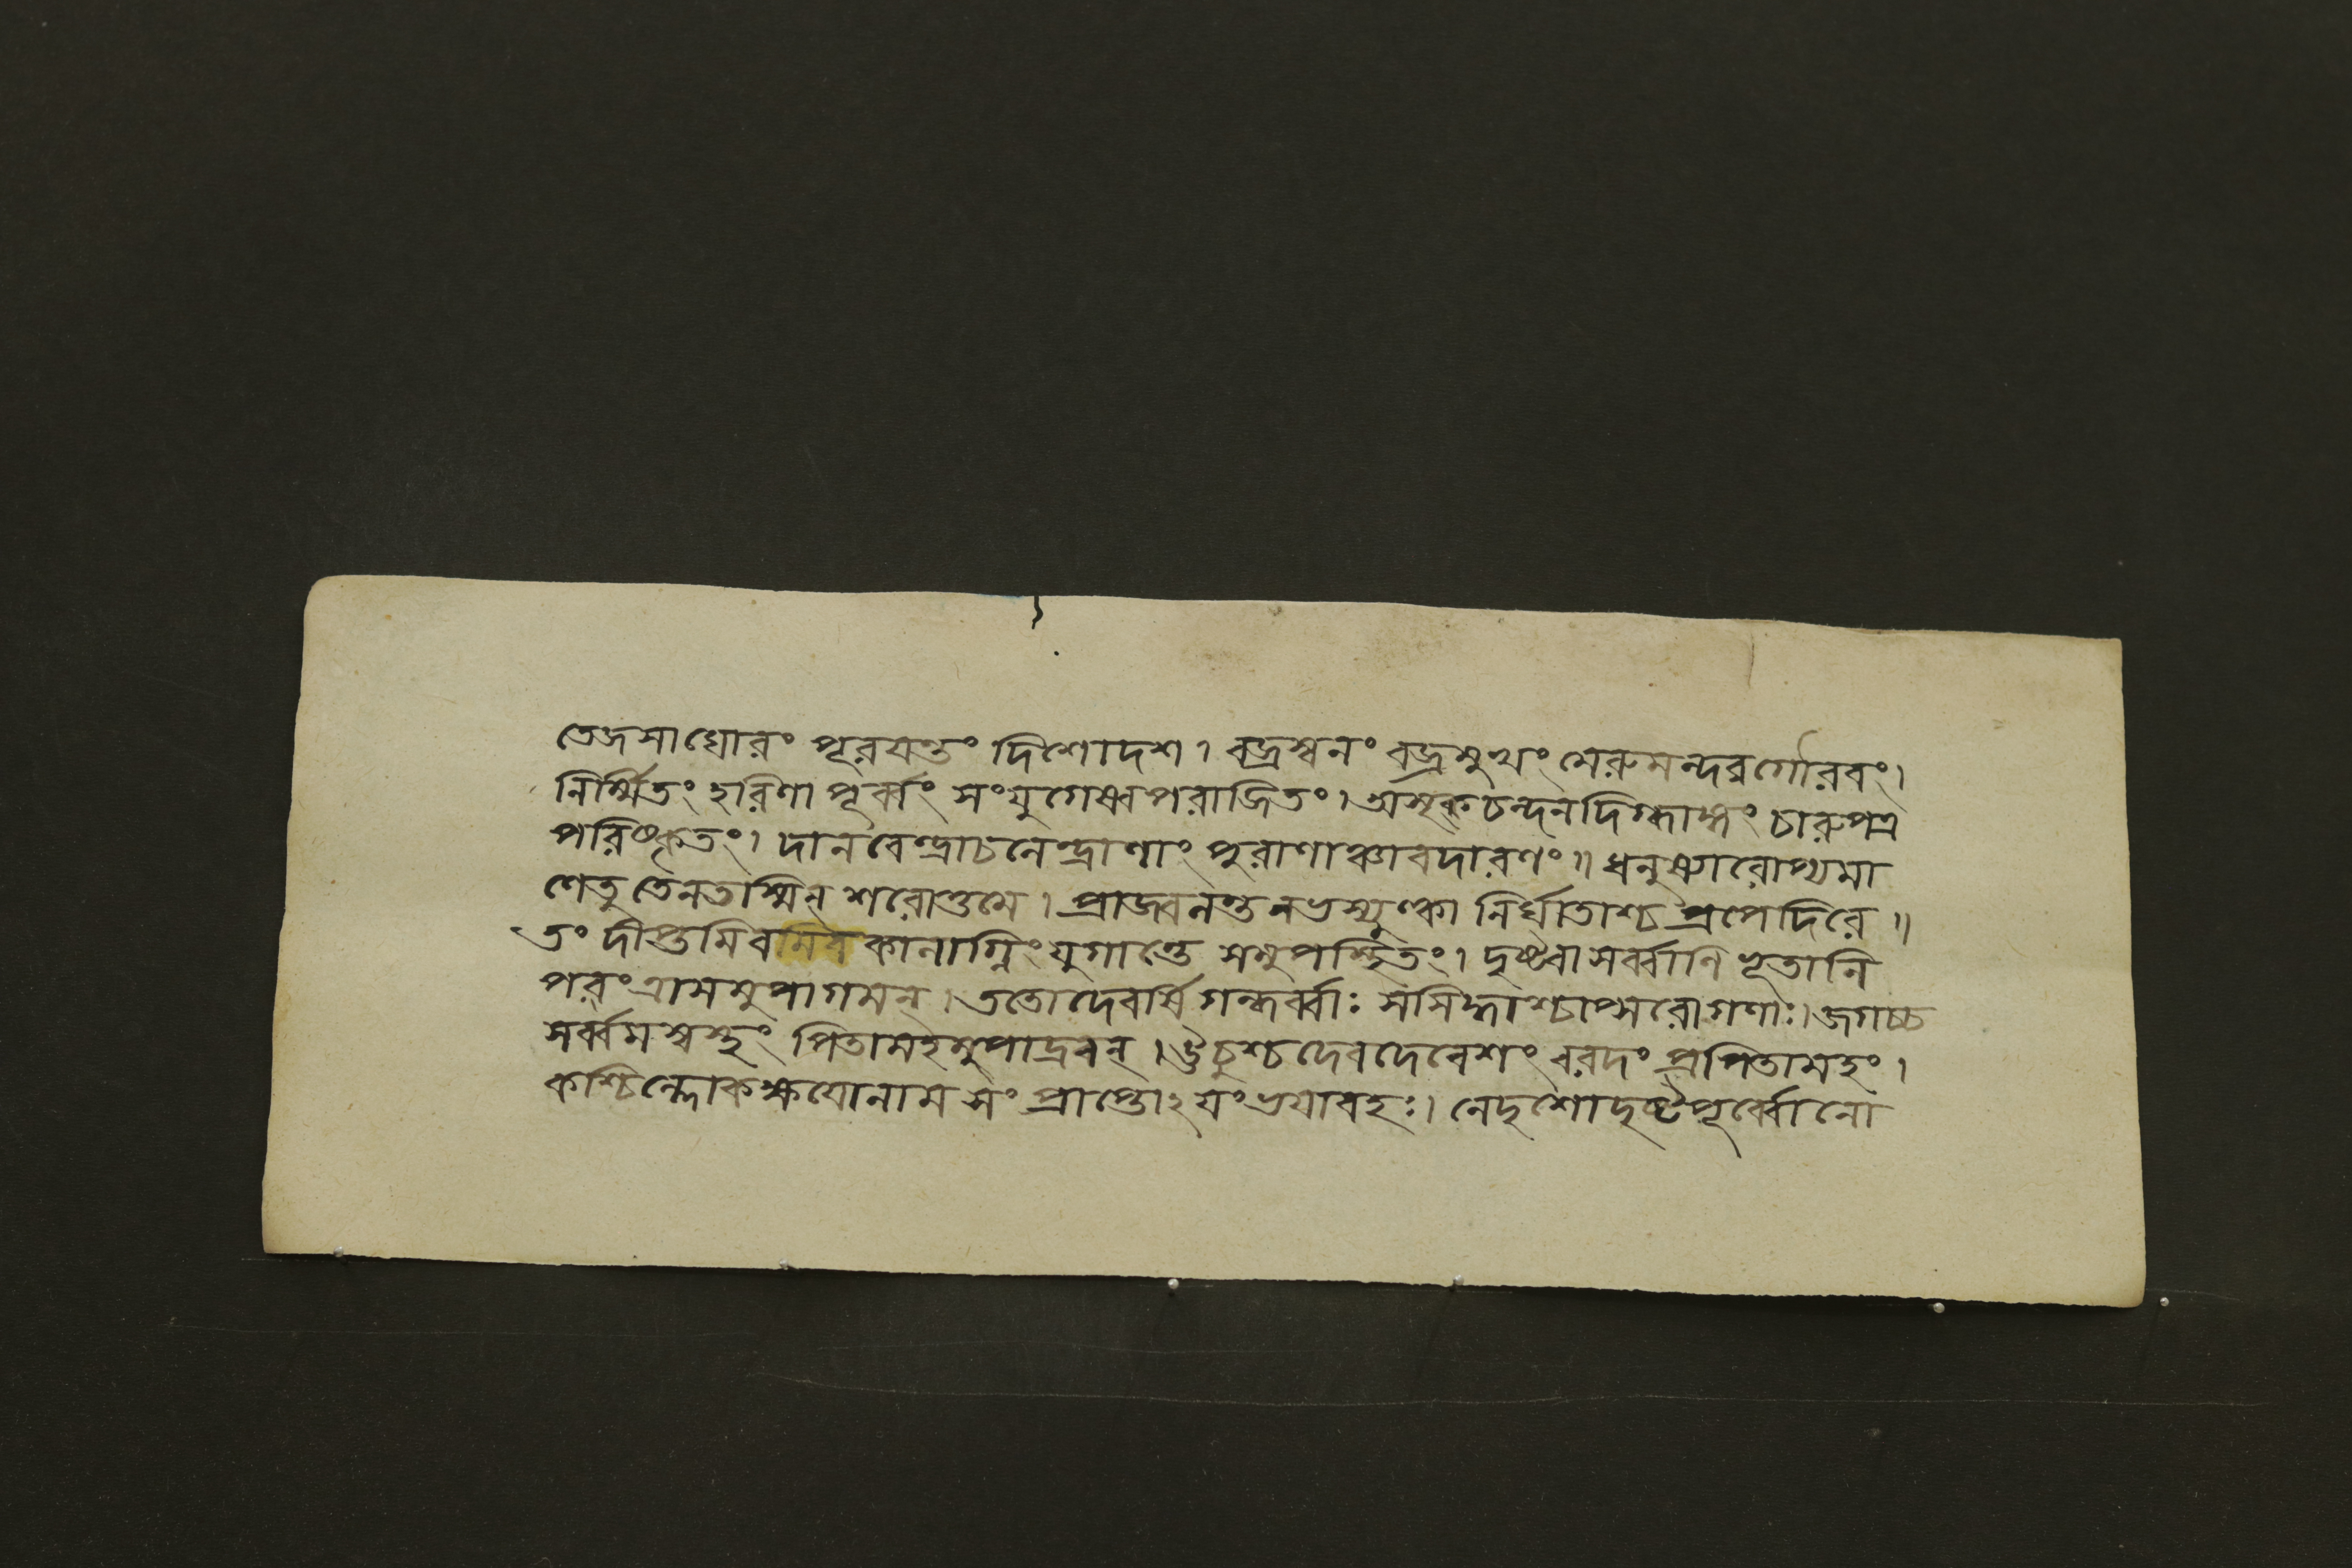 তেজসাঘোরং পূরয়ন্তং দিশোদশ। বজ্রস্বনং বজ্রমুখং মেরুমন্দরগৌরবং।
নির্ম্মিতং হরিণা পূর্ব্বং সংযুগেষ্বপরাজিতং। অসৃক্চন্দনদিগ্ধাঙ্গং চারুপত্র
পরিষ্কৃতং। দানবেন্দ্রাচলেন্দ্রাণাং পুরাণাঞ্চাবদারণং॥ ধনুষ্যারোপ্যমা
ণেতু তেনতস্মিন্ শরোত্তমে। প্রাজ্বলন্তনভস্যুল্কা নির্ঘাতাশ্চ প্রপেদিরে॥
তং দীপ্তমিবমিব কালাগ্নিং যুগান্তে সমুপস্থিতং। দৃষ্ট্বা সর্ব্বাণি ভূতানি
পরং ত্রাসমুপাগমন্। ততোদেবর্ষি গন্ধর্ব্বাঃ সসিদ্ধাশ্চাপ্সরোগণাঃ। জগচ্চ
সর্ব্বমস্বস্থং পিতামহমুপাদ্রবন্। ঊচুশ্চদেবদেবেশং বরদং প্রপিতামহং।
কশ্চিল্লোকক্ষয়োনাম সং প্রাপ্তোঽয়ং ভয়াবহঃ। নেদৃশোদৃষ্টপূর্ব্বোনো